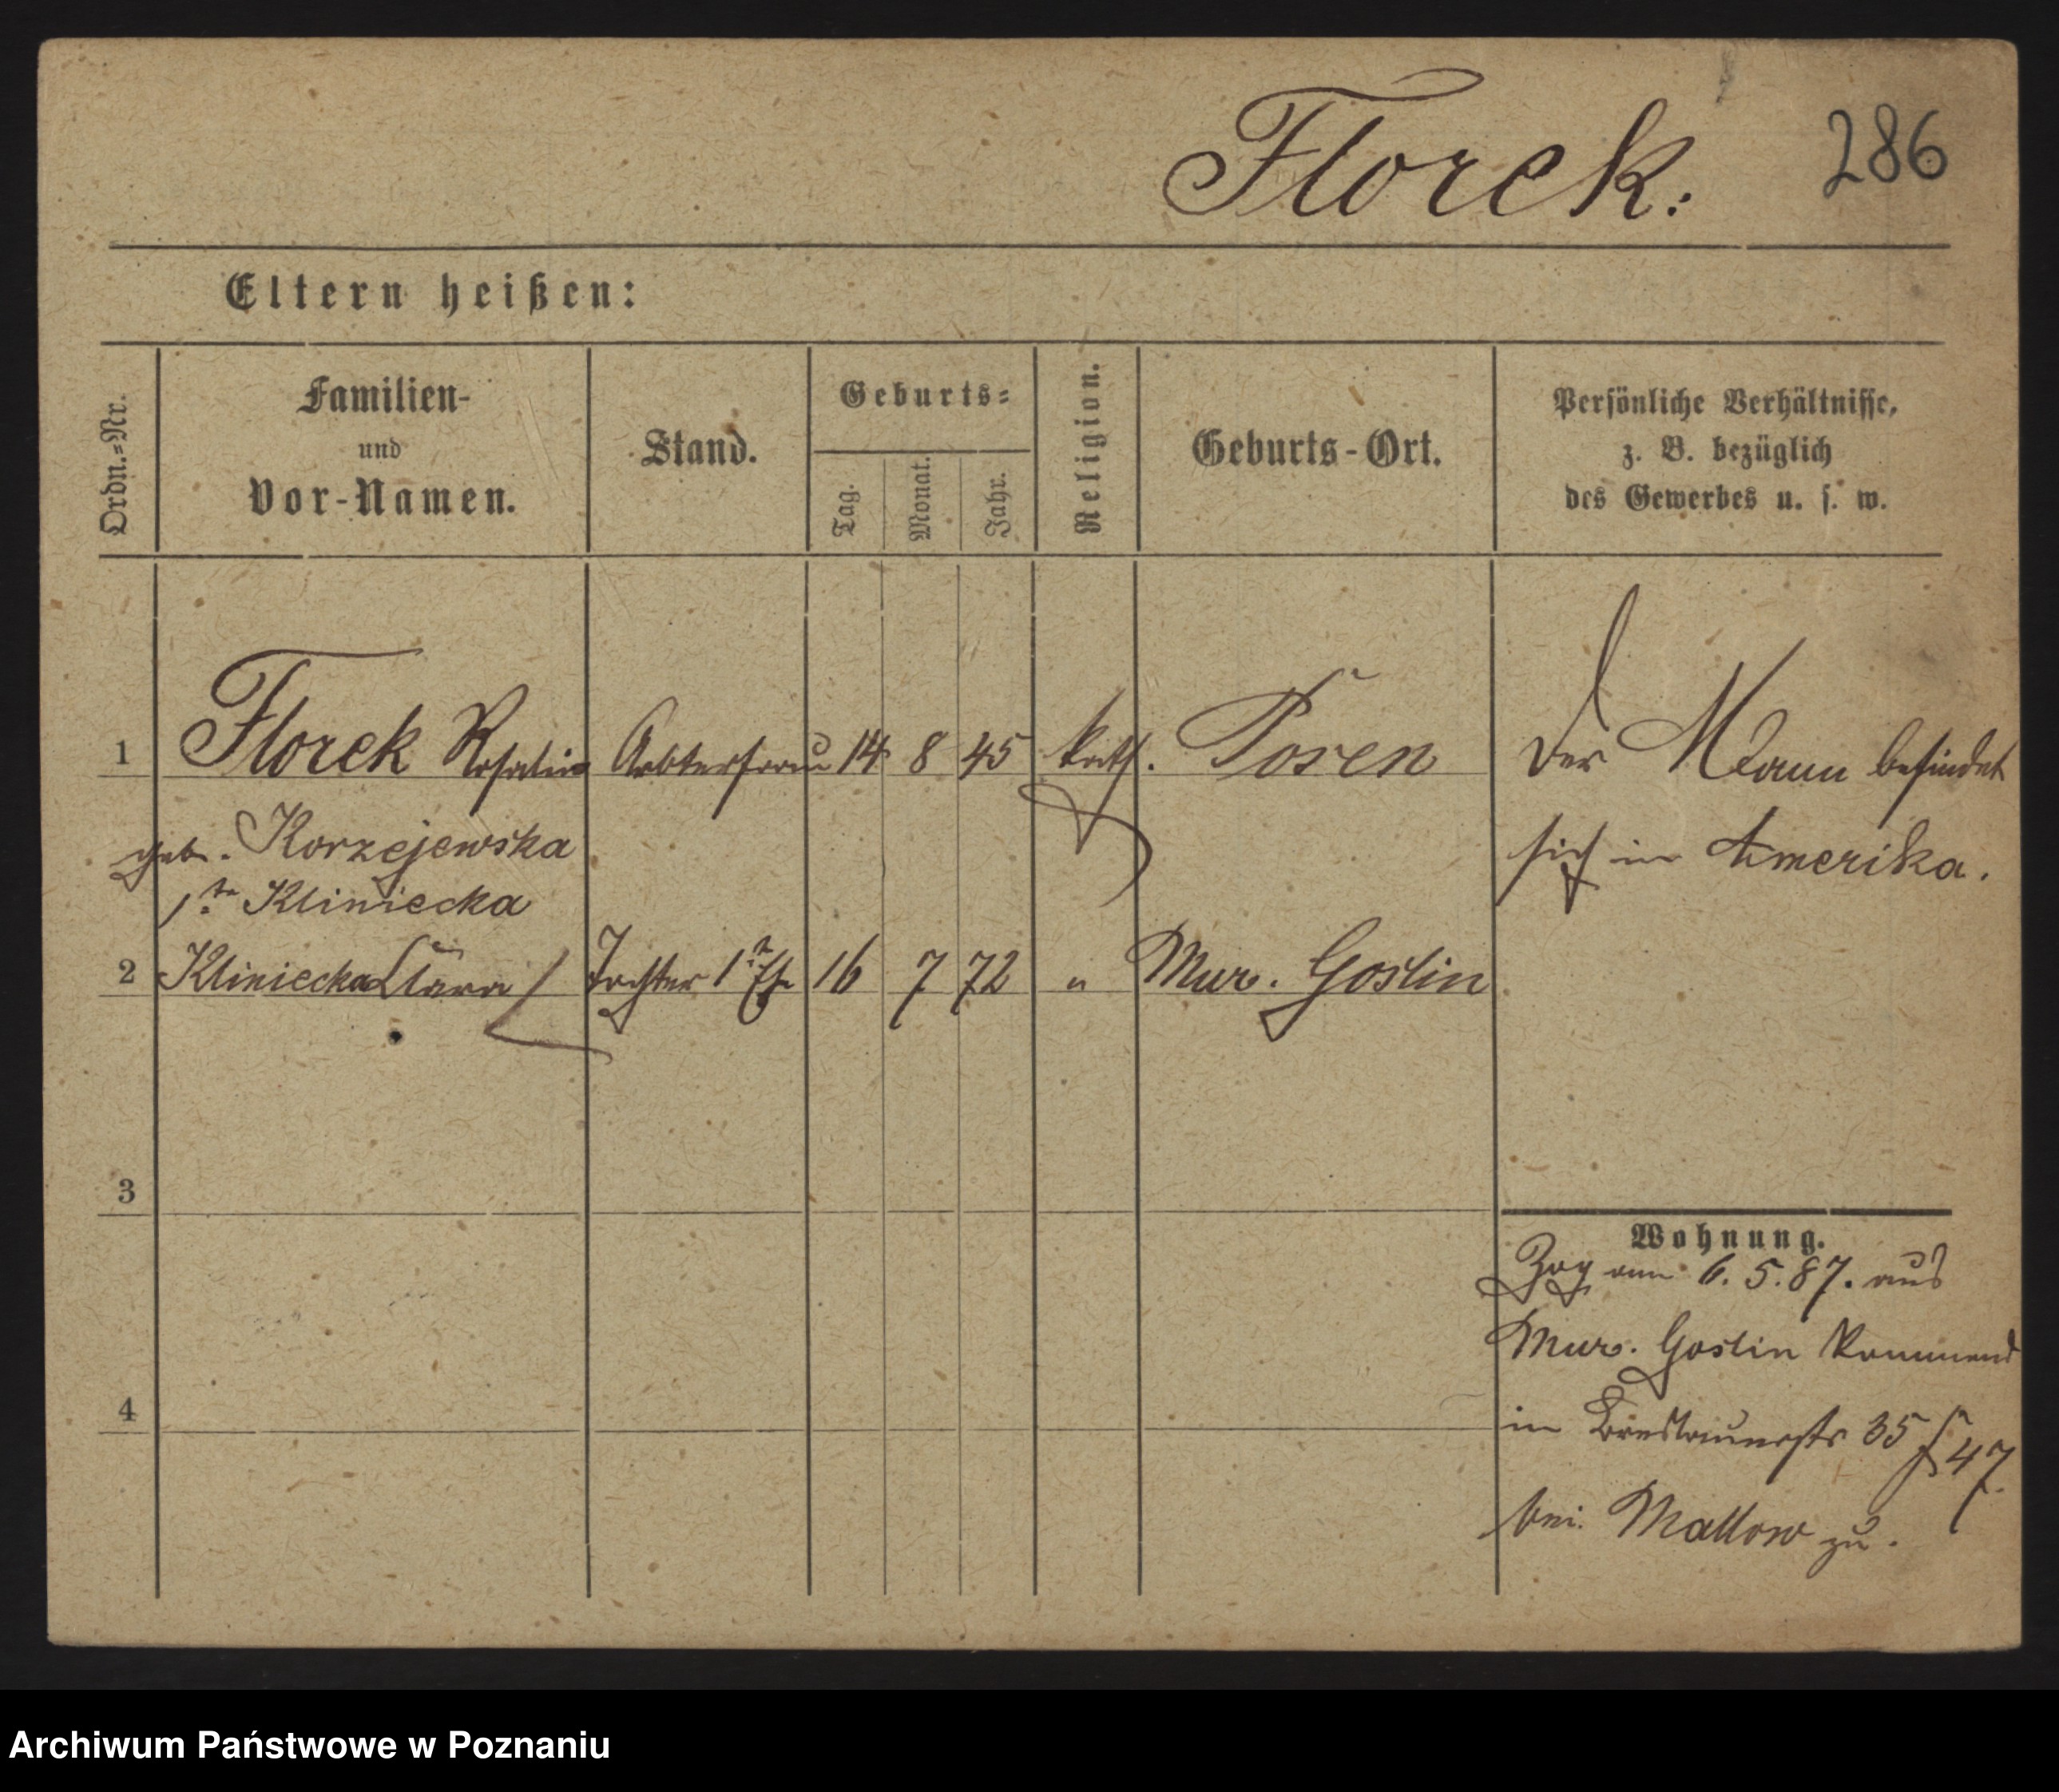 Florek.
286
Eltern heißen:
Ordn.=Nr.
Familien-
und
Vor-Namen.
Stand.
Geburts=
Tag.
Monat.
Jahr.
Religion.
Geburts-Ort.
Persönliche Verhältnisse,
z. B. bezüglich
des Gewerbes u. s. w.
1 Florek Rosalie Arbterfrau 14 8 45 kath. Posen Der Mann befindet
geb. Korzejewska sich in Amerika.
1te Kliniecka
2 Kliniecka Clara Tochter 1ter Ehe 16 7 72 " Mur. Goslin
3
Wohnung.
Zog am 6. 5. 87. aus
Mur. Goslin kommend
4
in Breslauerstr 35
47
bei Mattow zu.
Archiwum Państwowe w Poznaniu